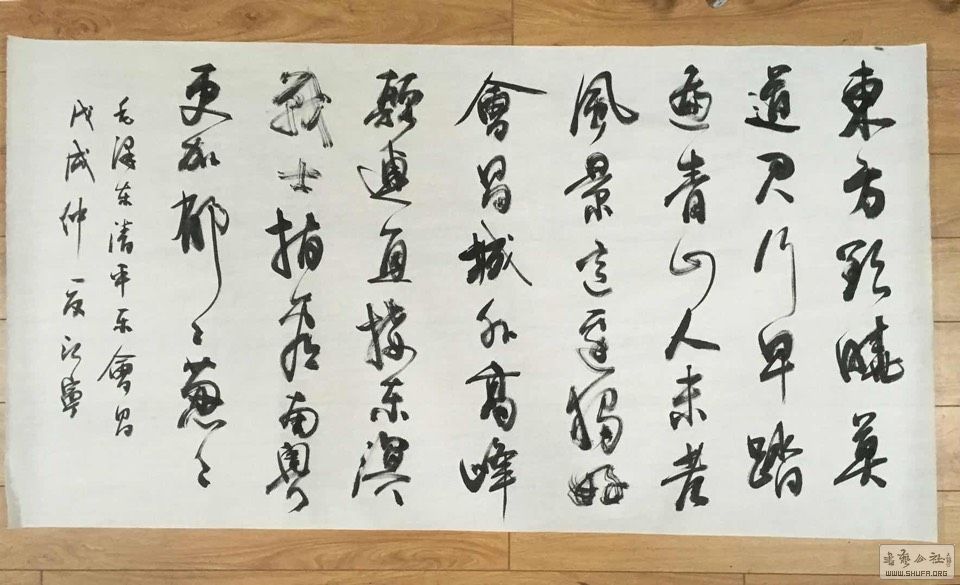 東方欲曉莫
道君行早踏
遍青山人未老
風景這邊獨好
會昌城外高峰
顛連直接东溟
戰士指看南粵
更加郁々葱々
毛澤东清平乐會昌
戊戌仲夏
書藝公社
WWW.SHUFA.ORG